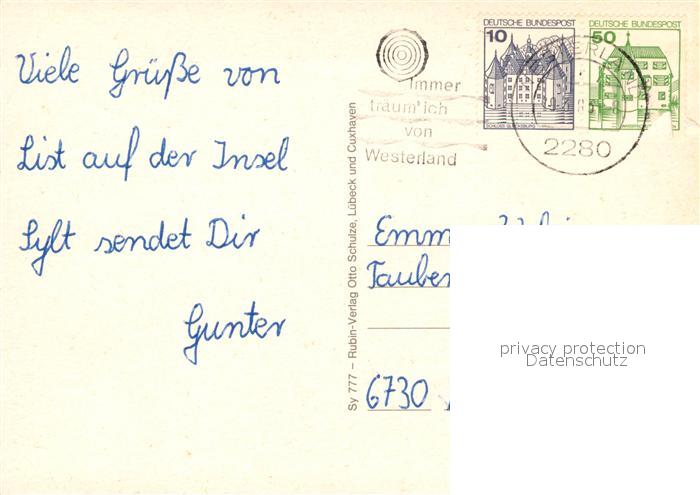 Viele Grüße von
List auf der Insel
Sylt sendet Dir
Gunter
Sy 777 – Rubin-Verlag Otto Schulze, Lübeck und Cuxhaven
immer
träum' ich
von
Westerland
10 DEUTSCHE BUNDESPOST
SCHLOSS GLÜCKSBURG
50 DEUTSCHE BUNDESPOST
2280
Emm
Tauben
6730
privacy protection
Datenschutz